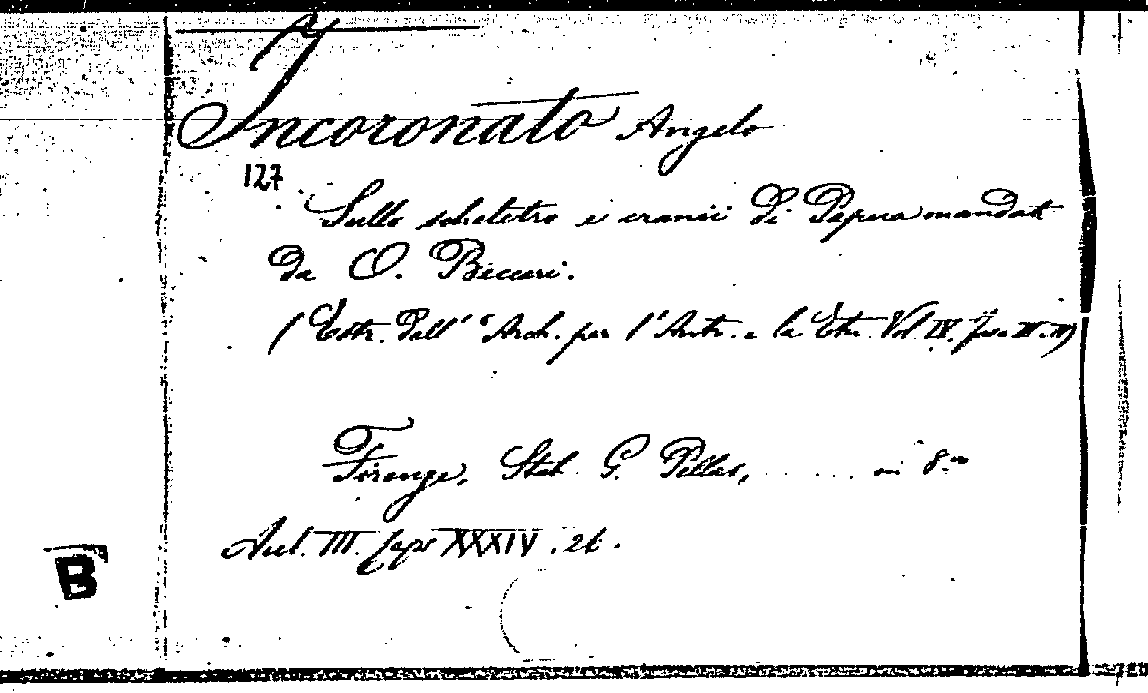 Incoronato Angelo
127
Sullo scheletro e cranii di Papua mandati
da O. Beccari.
(Estr. dall' "Arch. per l'Antr. e la Etn. Vol. IX. fasc.
Firenze, Stab. G. Pellas, ........ in 8.vo
Aul. III. caps XXXIV. 26.
B